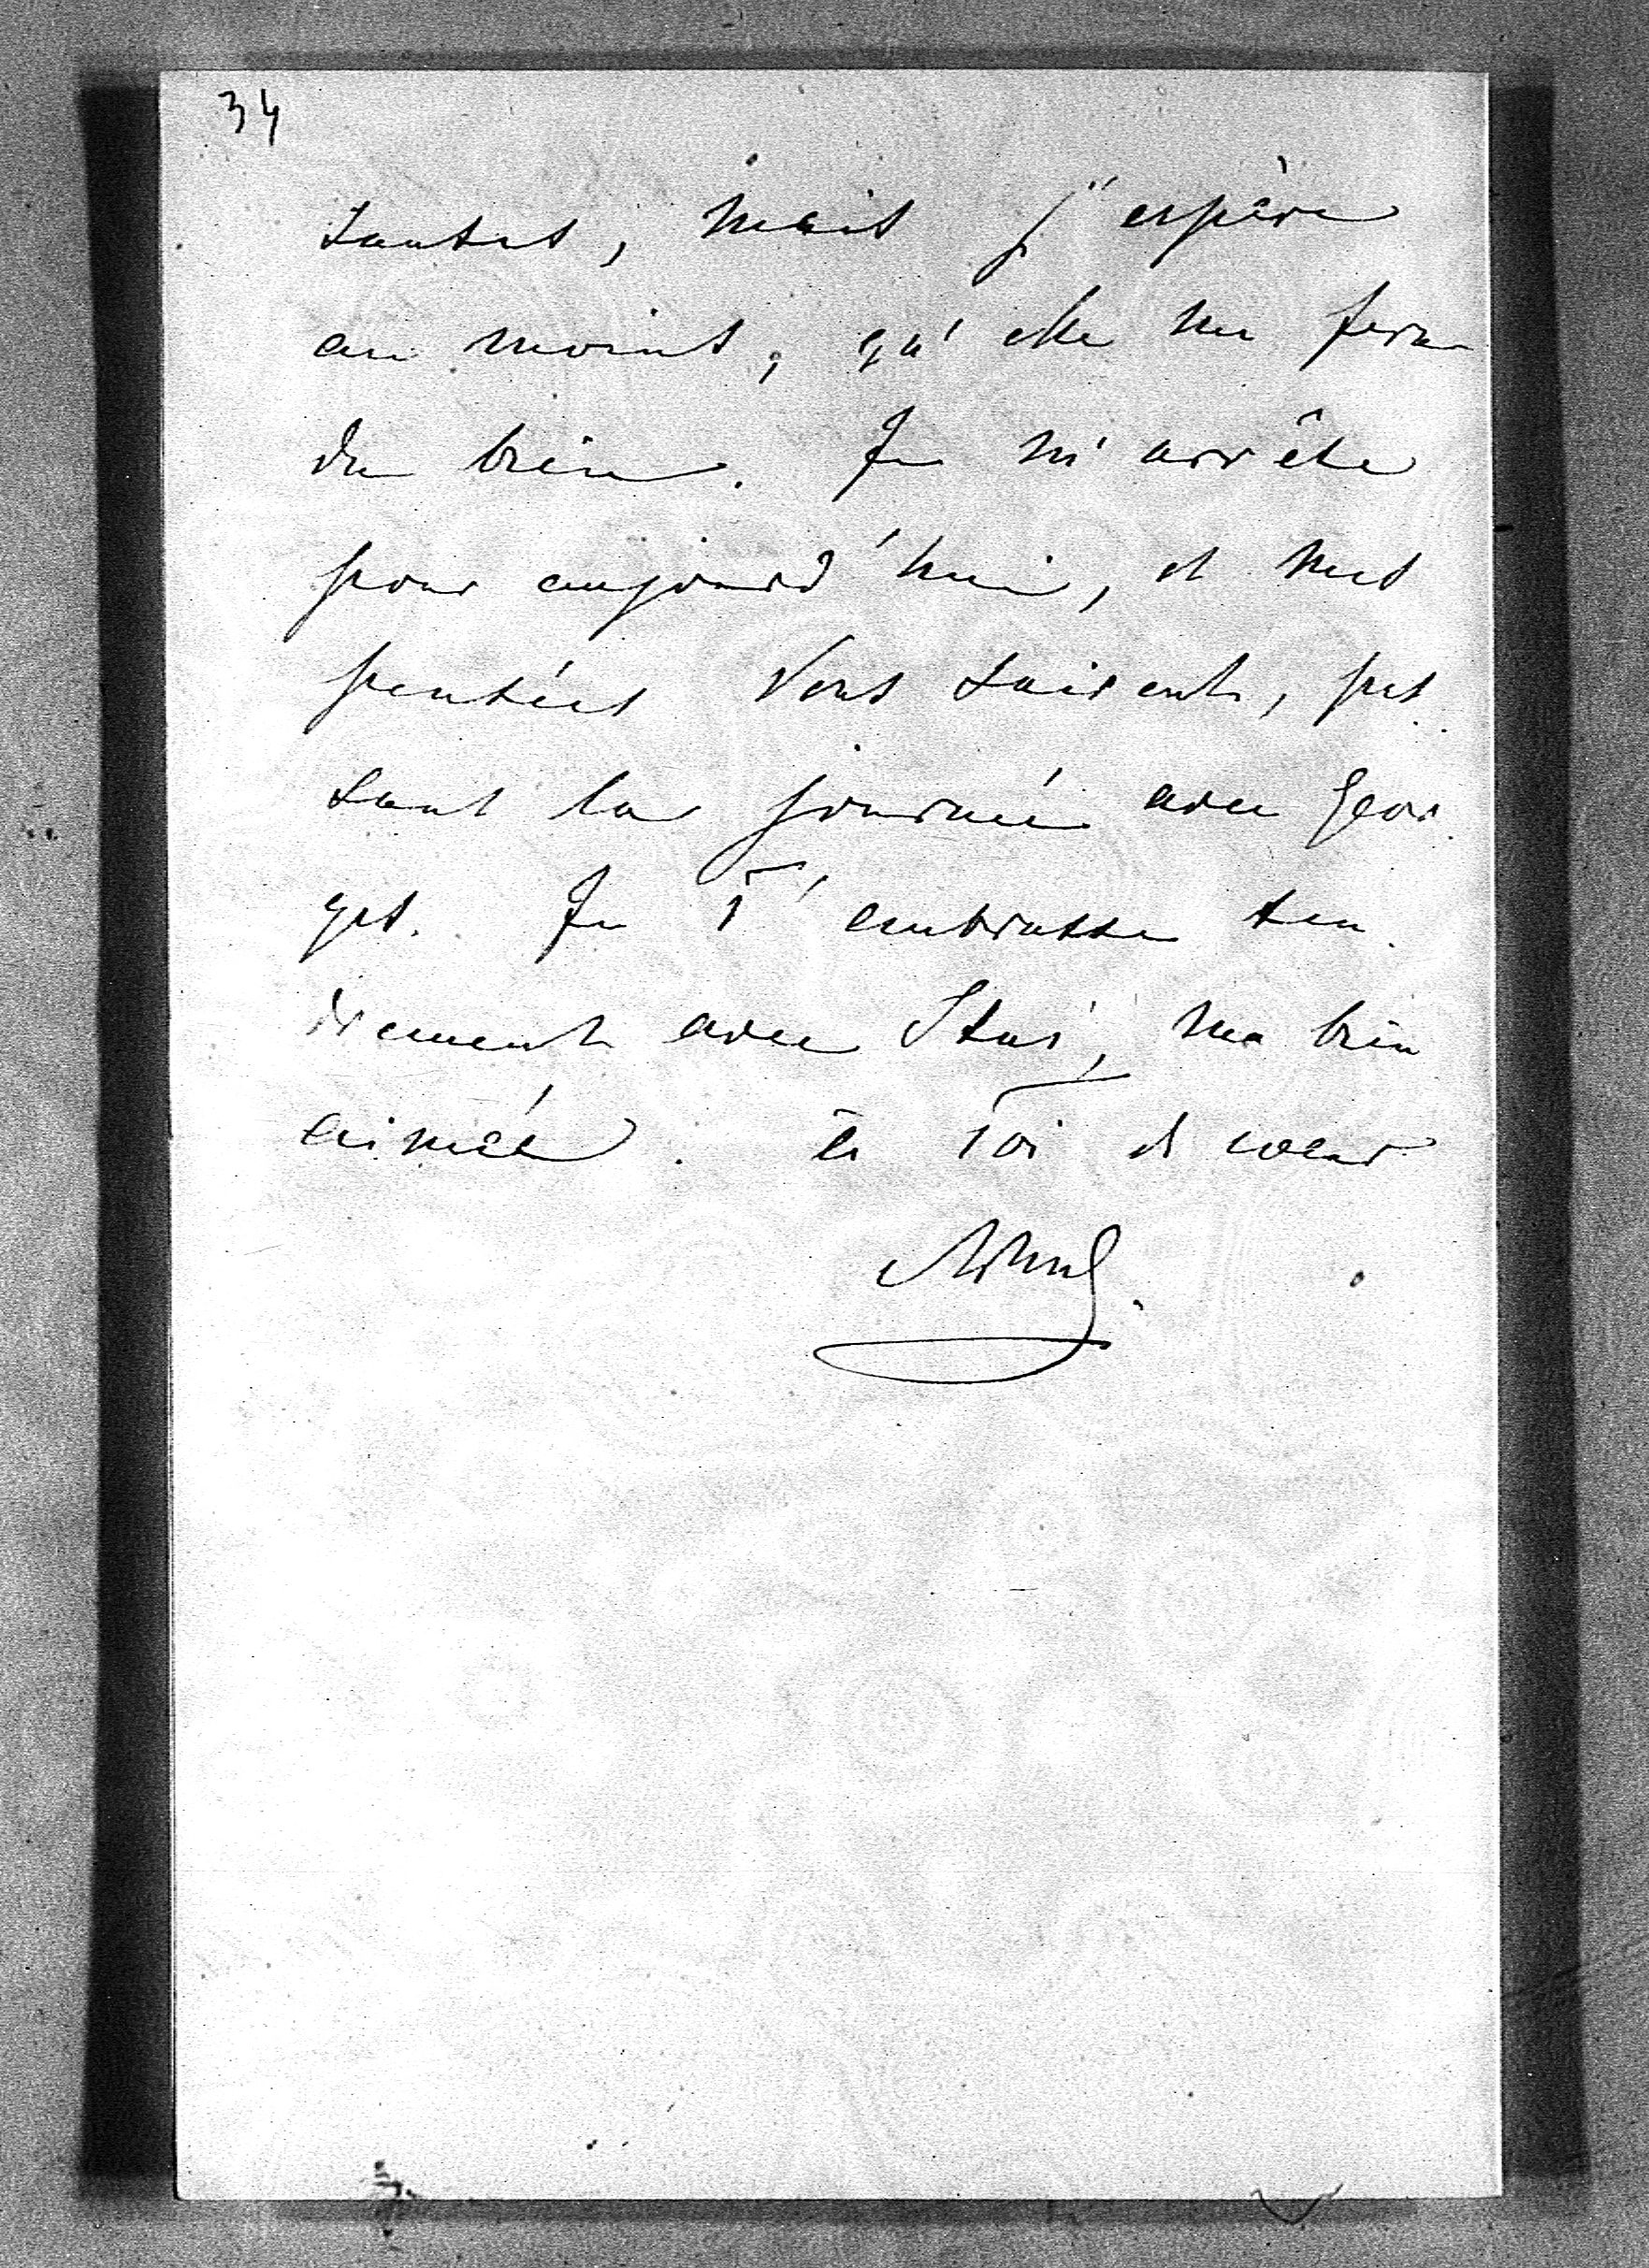 34
santes, mais j'espère
au moins, qu'elle me fera
du bien. Je m'arrête
pour aujourd'hui, et mes
pensées vous suivent, pas
sant la journée avec Geor
ges. Je t'embrasse ten
drement avec Stasi, ma bien
aimée. à toi de coeur